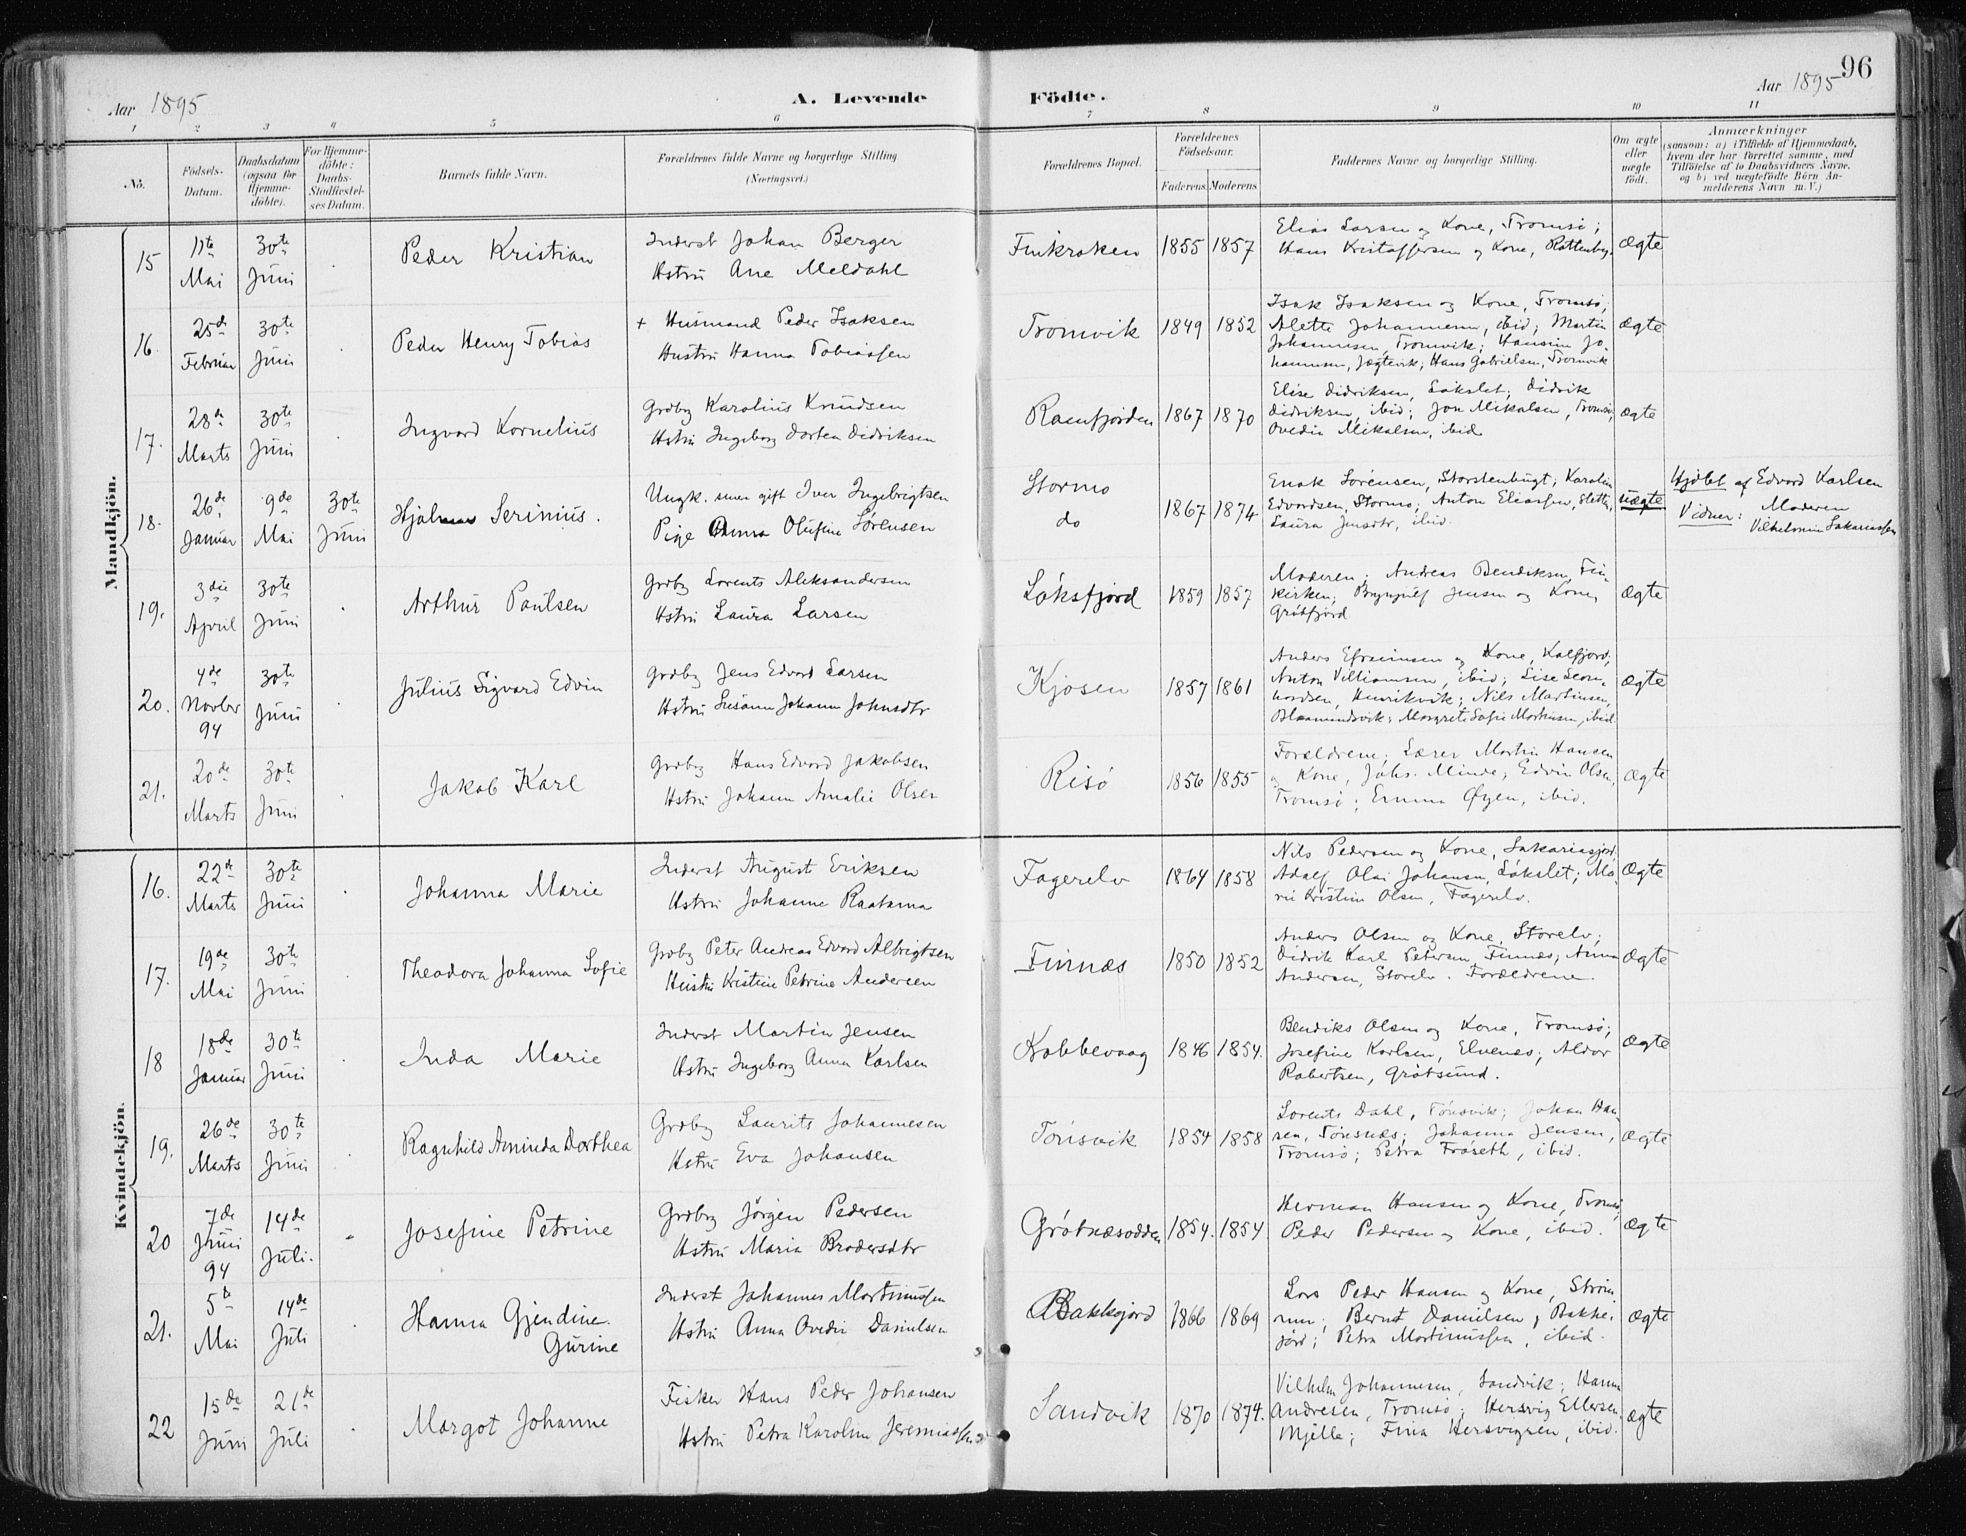 96
Aar 1895
A. Levende Födte.
Aar 1895
1 2 3 4 5 6 7 8 9 10 11
No.
Födsels-Datum.
Daabsdatum (ogsaa for Hjemme-döbte).
For Hjemme-döbte: Daabs-Stadfæstel-ses Datum.
Barnets fulde Navn.
Forældrenes fulde Navne og borgerlige Stilling (Næringsvei.)
Forældrenes Bopæl.
Forældrenes Födselsaar.
Faderens. Moderens.
Faddernes Navne og borgerlige Stilling.
Om ægte eller uægte födt.
Anmærkninger
(saasom: a) i Tilfælde af Hjemmedaab, hvem der har forrettet samme, med Tilföielse af to Daabsvidners Navne, og b) ved uægtefödte Börn An-melderens Navn m. V.)
Mandkjön.
15 11te Mai 30te Juni Peder Kristian Inderst Johan Berger Hstru Ane Meldahl Finkroken 1855 1857 Elias Larsen og Kone, Tromsø; Hans Kristoffersen og Kone, Rottenby. Ægte
16. 25de Februar 30te Juni Peder Henry Tobias + Husmand Peder Isaksen Hustru Hanna Tobiassen Tromvik 1849 1852 Isak Isaksen og Kone, Tromsø; Alette Johannesen, ibid; Martin Johannesen, Tromvik; Hansine Johannesen, Jægtevik; Hans Gabrielsen, Tromvik Ægte
17. 28de Marts 30te Juni Ingvard Kornelius Grdbr Karolius Knudsen Hstru Ingeborg Dorten Didriksen Ramfjorden 1867 1870 Elise Didriksen, Løkslet; Didrik Didriksen, ibid; Jon Mikalsen, Tromsø; Ovedia Mikalsen, ibid. Ægte
18. 26de Januar 9de Mai 30te Juni Hjalmar Serinius. Ungk. senere gift Iver Ingebrigtsen Pige Anna Olufine Sørensen Stormo do 1867 1874 Enok Sørensen, Storstenbugt; Karoline Edvardsen, Stormo; Anton Eliassen, Sletta; Laura Jensdtr, ibid. uægte Hjdøbt af Edvard Karlsen Vidner: Moderen Vilhelmine Sakariassen
19. 3die April 30te Juni Arthur Paulsen Grdbr Lorents Aleksandersen Hstru Laura Larsen Løksfjord 1859 1857 Moderen; Andreas Bendiksen, Finkirken; Brynjulf Jensen og Kone, Grøtfjord Ægte
20. 4de Novber 94 30te Juni Julius Sigvard Edvin Grdbr Jens Edvard Larsen Hstru Susanna Johanna Johnsdtr Kjosen 1857 1861 Anders Efraimsen og Kone, Kalfjord; Anton Villiamsen, ibid; Lise Leonhardsen, Henrikvik; Nils Martinsen, Blaamandsvik; Margrete Sofie Martinsen, ibid Ægte
21. 20de Marts 30te Juni Jakob Karl Grdbr Hans Edvard Jakobsen Hstru Johanna Amalie Olsen Risø 1856 1855 Forældrene; Lærer Martin Hansen og Kone, Johs. Minde; Edvin Olsen, Tromsø; Emma Øyen, ibid. Ægte
Kvindekjön.
16. 22de Marts 30te Juni Johanna Marie Inderst August Eriksen Hstru Johanne Raatama Fagerelv 1864 1858 Nils Pedersen og Kone, Sakariasjord, Adolf Olai Johansen, Løkslet; Marie Kristine Olsen, Fagerelv. Ægte
17. 19de Mai 30te Juni Theodora Johanna Sofie Grdbr Peter Andreas Edvard Albrigtsen Hustru Kristine Petrine Andersen Finnæs 1850 1852 Anders Olsen og Kone, Storelv; Didrik Karl Petersen, Finnæs; Anna Andersen, Storelv. Forældrene. Ægte
18 18de Januar 30te Juni Inda Marie Inderst Martin Jensen Hstru Ingeborg Anna Karlsen Kobbevaag 1846 1854. Bendiks Olsen og Kone, Tromsø; Josefine Karlsen, Elvenes; Aldor Robertsen, Grøtsund. Ægte
19. 26de Marts 30te Juni Ragnhild Aminda Dorthea Grdbr Laurits Johannesen Hstru Eva Johansen Tønsvik 1854 1858 Lorents Dahl, Tønsvik; Johan Hansen, Tønsnæs; Johanna Jensen, Tromsø; Petra Frøseth, ibid. Ægte
20 7de Juni 94 14de Juli. Josefine Petrine Grdbr Jörgen Pedersen Hstru Maria Brodersdtr Grøtnæsodden 1854. 1854 Herman Hansen og Kone, Tromsø Peder Pedersen og Kone, ibid. Ægte
21. 5te Mai 14de Juli Hanna Gjendine Gurine Inderst Johannes Martinussen Hstru Anna Ovedie Danielsen Bakkejord 1866 1869 Lars Peder Hansen og Kone, Strømmen; Bernt Danielsen, Bakkejord; Petra Martinussen, ibid. Ægte
22 15de Juni 21de Juli Margot Johanne Fisker Hans Peder Johansen Hstru Petra Karoline Jeremiassen Sandvik 1870 1874. Vilhelm Johannesen, Sandvik; Hanna Andresen, Tromsø; Hersvig Ellersen Mjelle; Fina Hersvigsen, ibid. Ægte